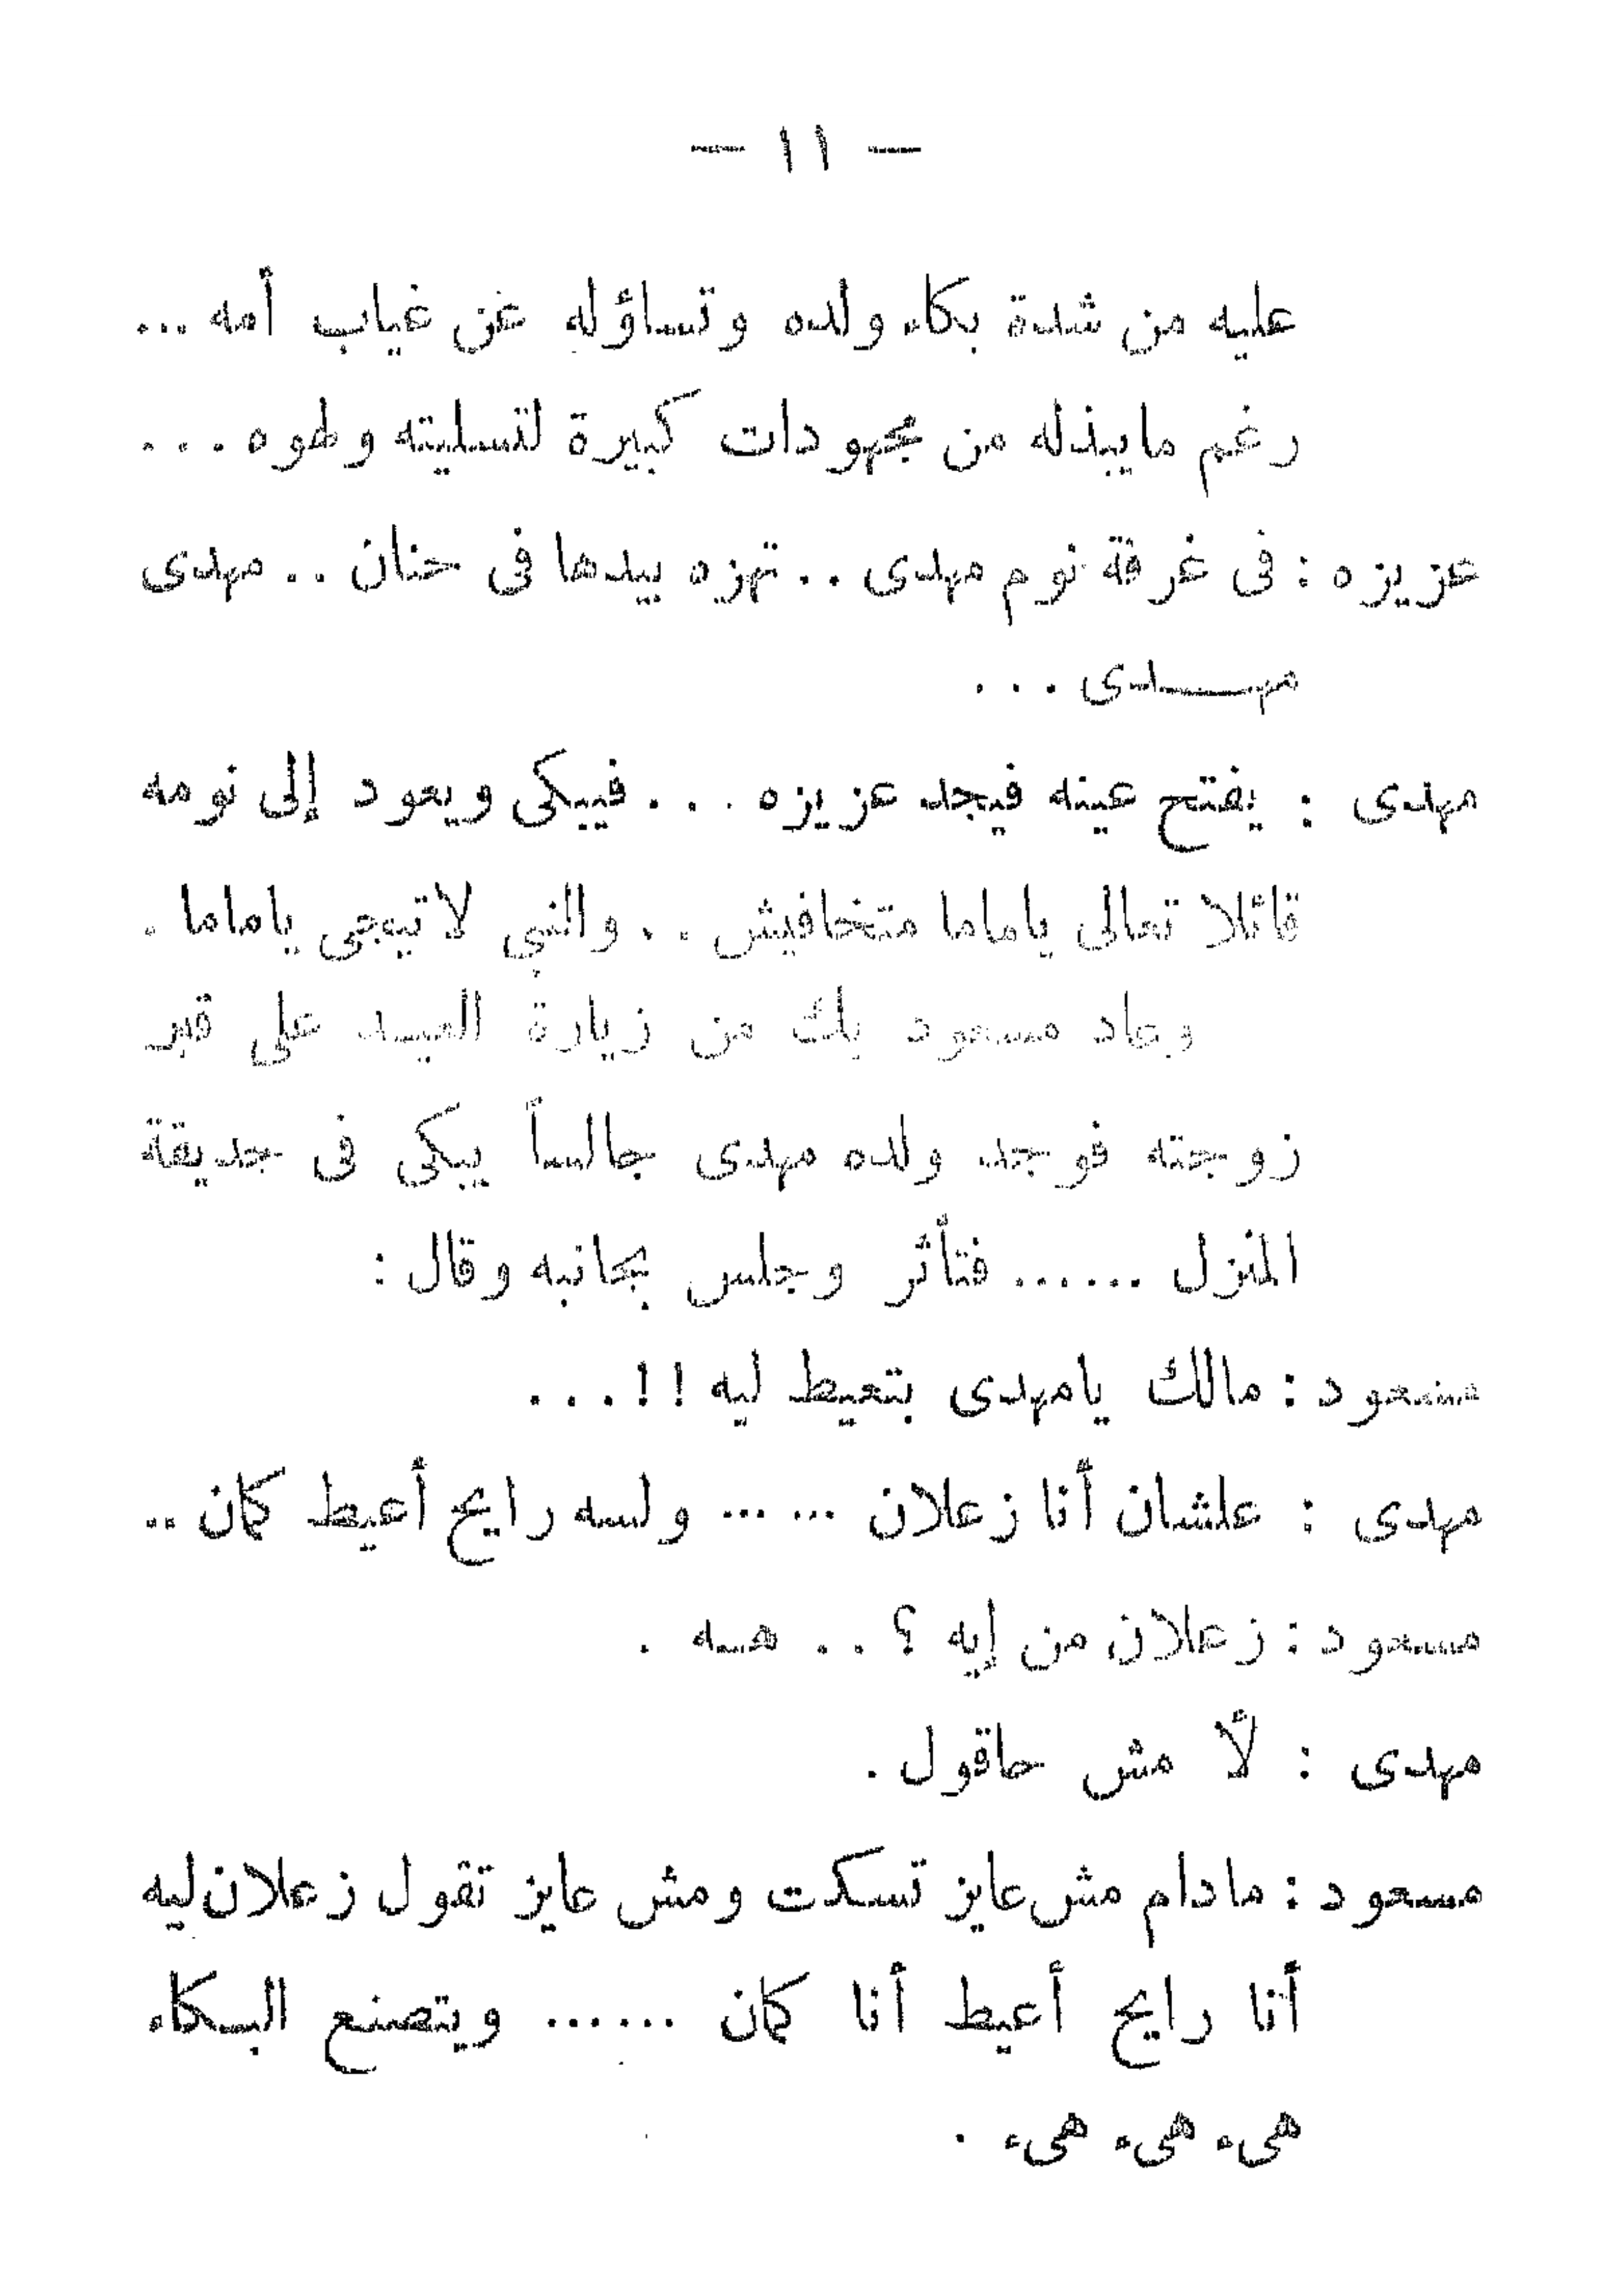 — ١١ —
عليه من شدة بكاء ولده وتساؤله عن غياب أمه ...
رغم مايبذله من مجهودات كبيرة لتسليته ولهوه ...
عزيزه : فى غرفة نوم مهدى .. تهزه بيدها فى حنان .. مهدى
مهـــدى ...
مهدى : يفتح عينه فيجد عزيزه ... فيبكى ويعود إلى نومه
قائلا تعالى ياماما متخافيش .. والنبي لاتيجى ياماما .
وعاد مسعود بك من زيارة العيد على قبر
زوجته فوجد ولده مهدى جالساً يبكى فى حديقة
المنزل ...... فتأثر وجلس بجانبه وقال :
مسعود : مالك يامهدى بتعيط ليه !! ...
مهدى : علشان أنا زعلان ...... ولسه رايح أعيط كمان ..
مسعود : زعلان من إيه ؟ .. هسه .
مهدى : لأ مش حاقول .
مسعود : مادام مش عايز تسكت ومش عايز تقول زعلان ليه
أنا رايح أعيط أنا كمان ...... ويتصنع البكاء
هىء هىء هىء .